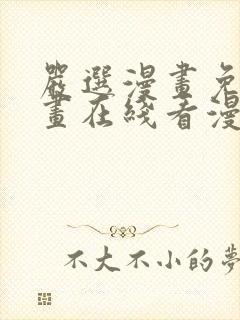 嚴選漫畫免
畫在綫看漫
不大不小的夢